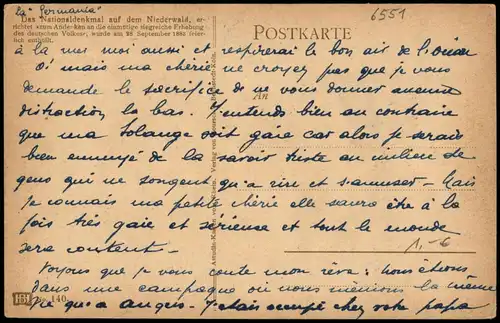 la "Germania"
6551
Das Nationaldenkmal auf dem Niederwald, er-
richtet »zum Andenken an die einmütige siegreiche Erhebung
des deutschen Volkes«, wurde am 28. September 1883 feier-
lich enthüllt.
POSTKARTE
à la mer moi aussi et respirerai le bon air de l'océan
Oi mais ma chérie ne croyez pas que je vous
demande le sacrifice de ne vous donner aucune
distraction là bas. J'entends bien au contraire
An
que ma Solange soit gaie car alors je serais
bien ennuyé de la savoir triste au milieu de
gens qui ne songent qu'a rire et s'amuser – Mais
je connais ma petite chérie elle saura être à la
fois très gaie et sérieuse et tout le monde
sera content –
1.-6
Voyons que je vous conte mon rêve : nous étions
dans une campagne où nous menions la même
vie qu'a angers. J'etais occupé chez votre papa
No. 140.